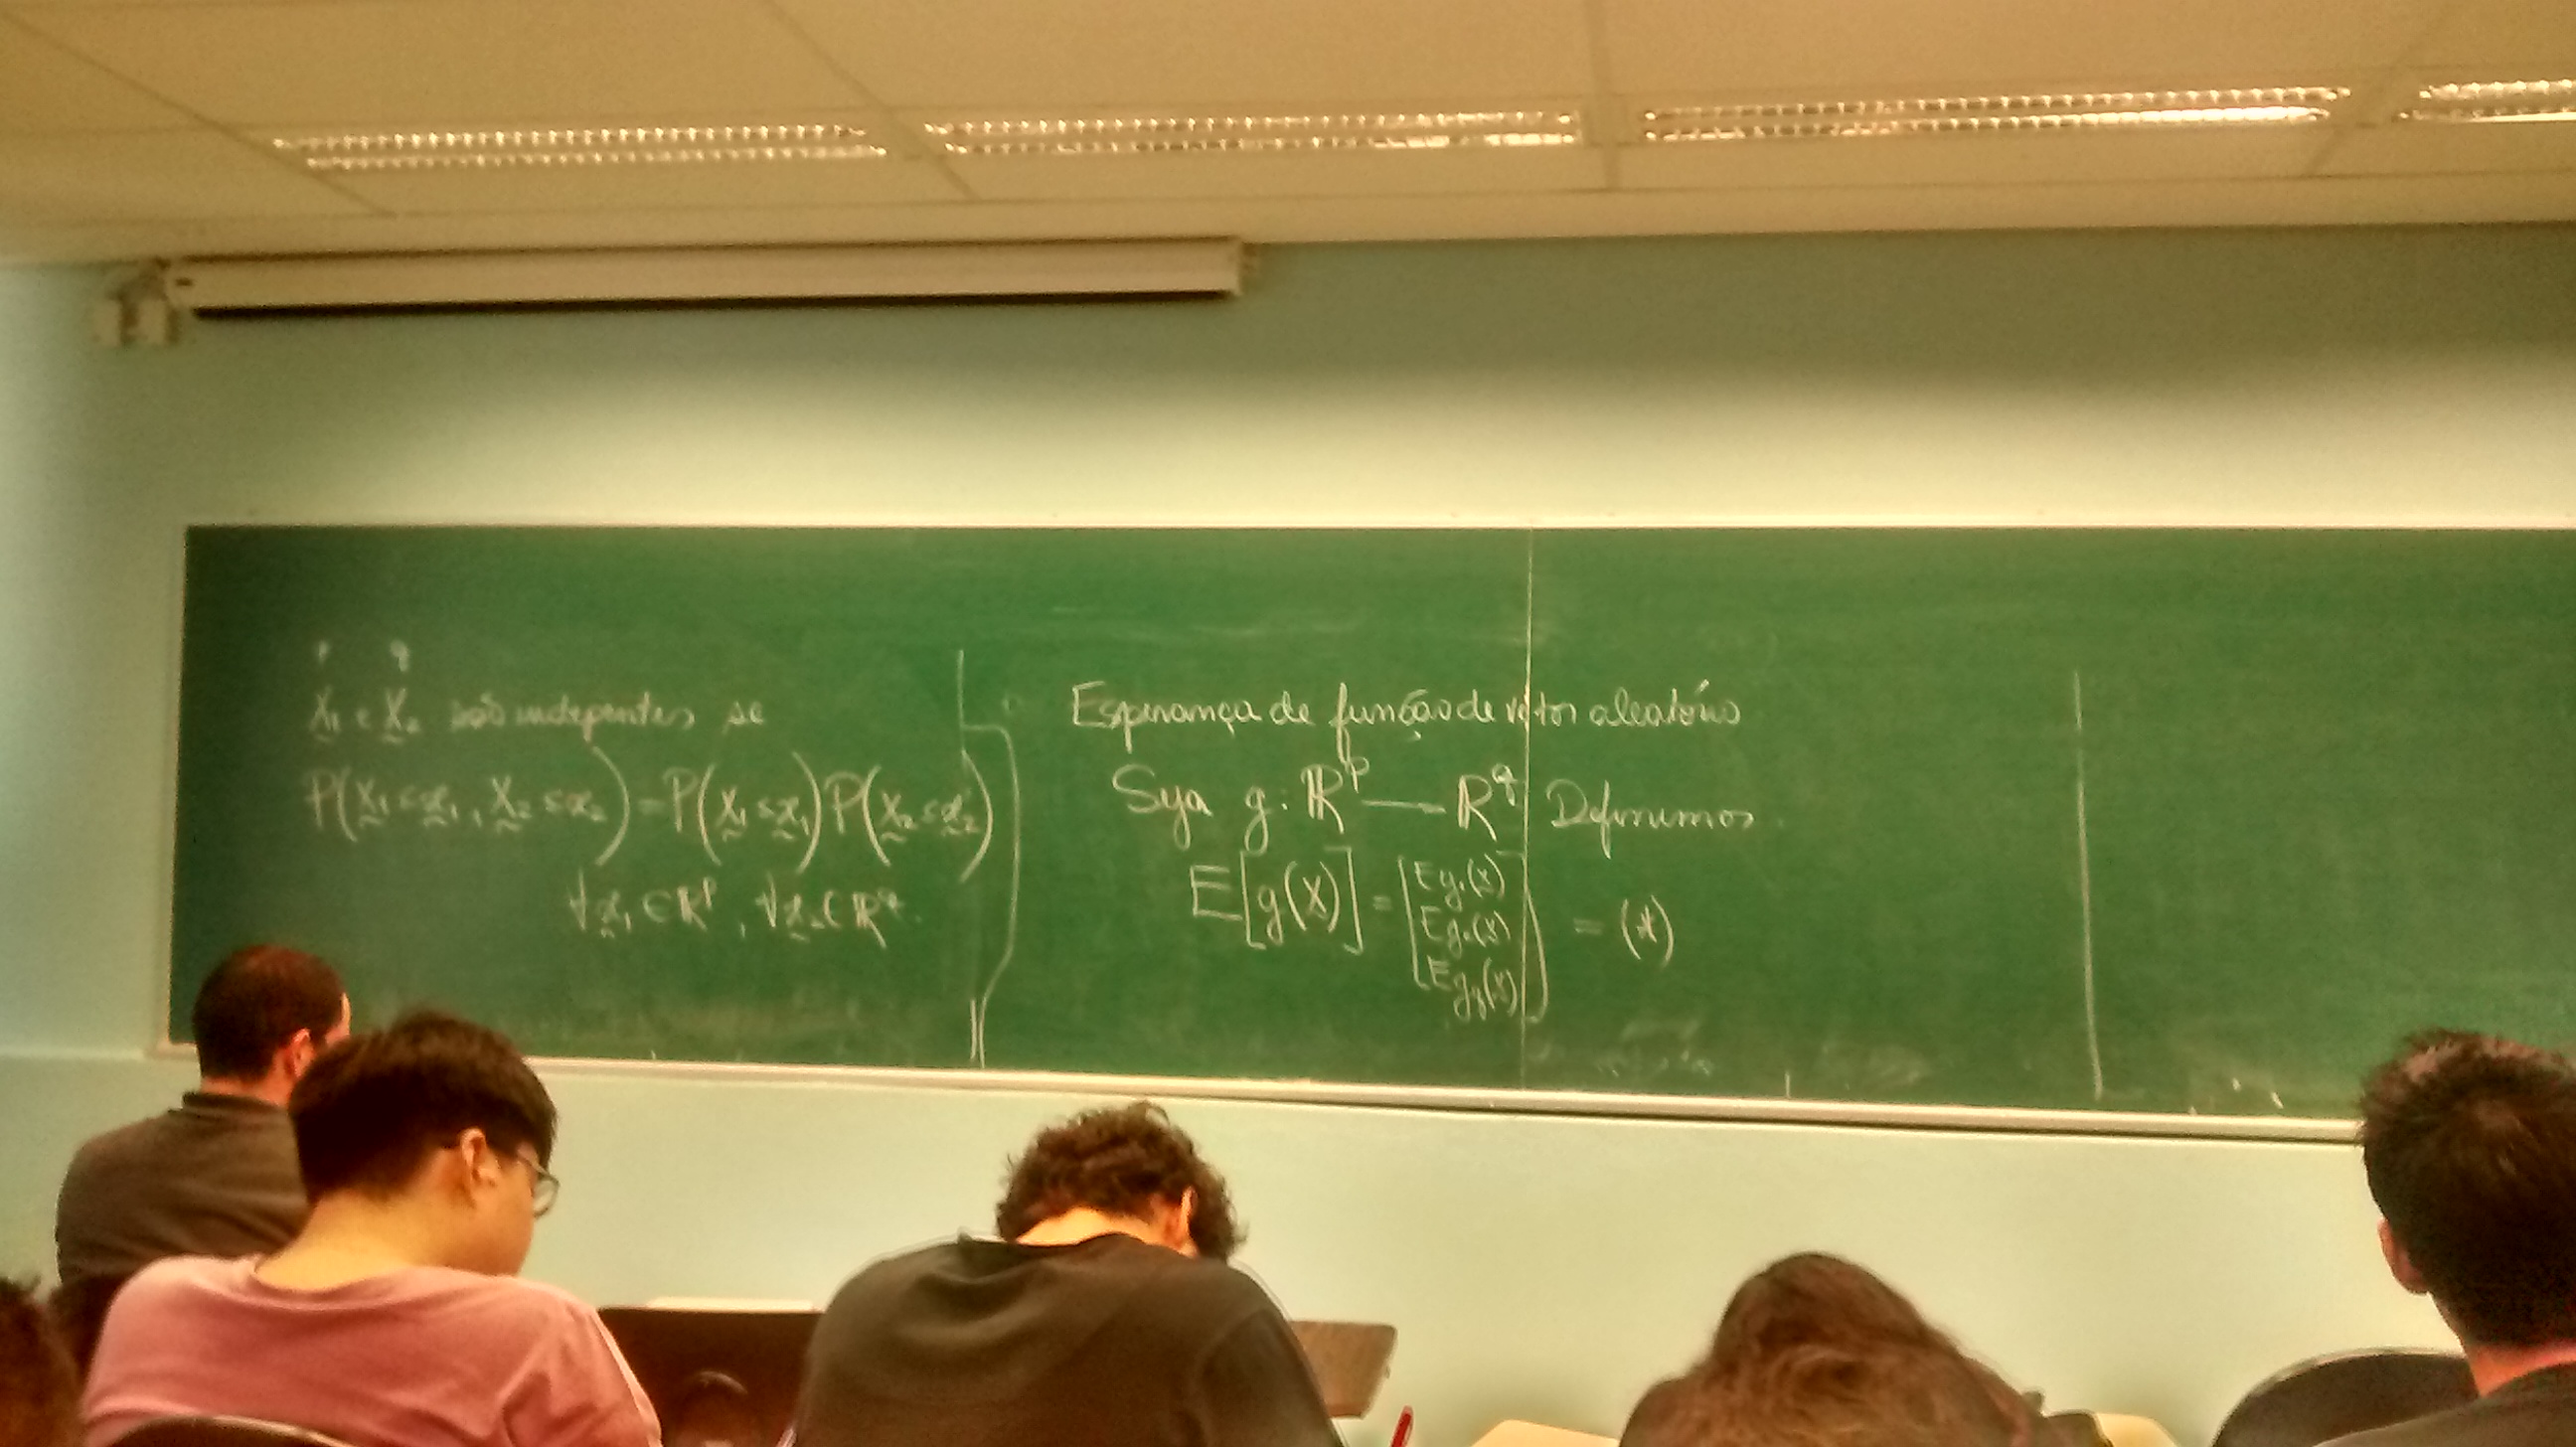 p q
X₁ e X₂ são indepentes se
P(X₁ ≤ x₁, X₂ ≤ x₂) = P(X₁ ≤ x₁) P(X₂ ≤ x₂)
∀ x₁ ∈ ℝᵖ, ∀ x₂ ∈ ℝ^q.
Esperança de função de vetor aleatório
Seja g: ℝᵖ — ℝ^q Definimos
E[g(X)] = [E g₁(X) E g₂(X) E g_q(X)] = (*)